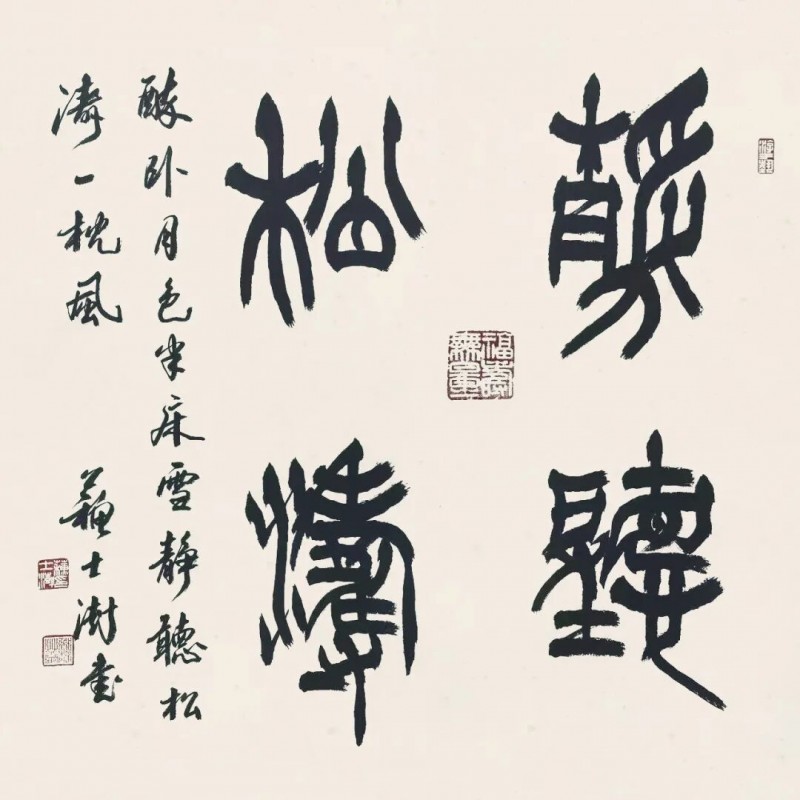 靜聽
松濤
福壽無量
醉卧月色半床雪靜聽松
濤一枕風
蘇士澍書